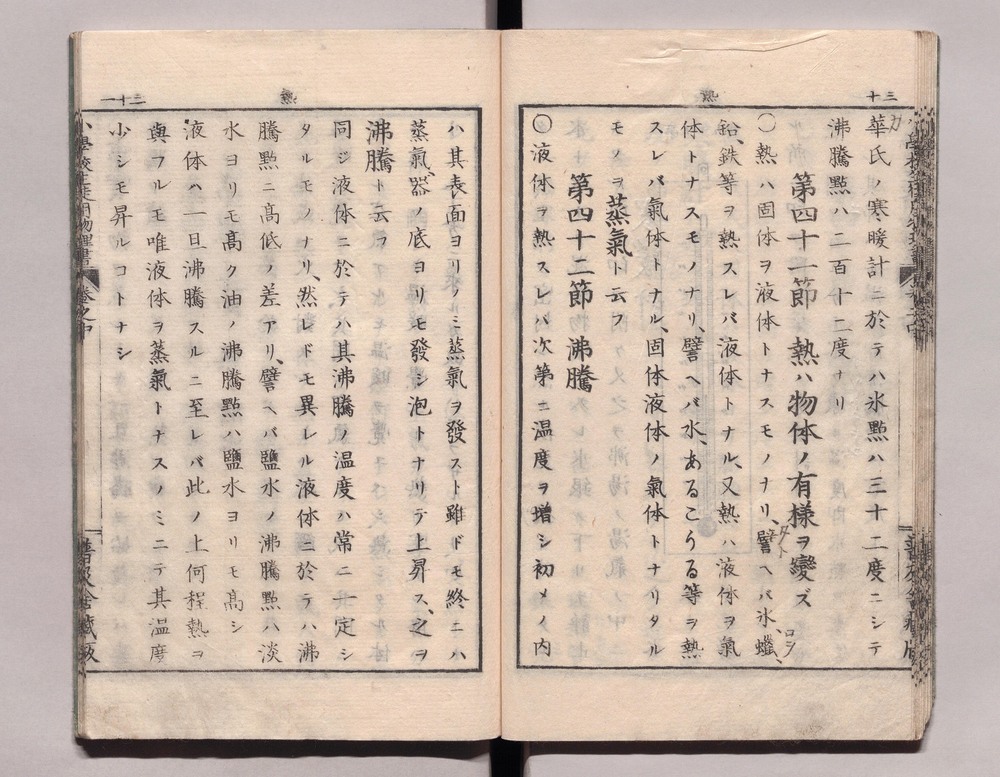 三十
熱
華氏ノ寒暖計ニ於テハ氷點ハ三十二度ニシテ
沸騰點ハ二百十二度ナリ
第四十一節 熱ハ物体ノ有樣ヲ變ズ
○熱ハ固体ヲ液体トナスモノナリ、譬ヘバ氷、蠟、
鉛、鉄等ヲ熱スレバ液体トナル、又熱ハ液体ヲ氣
体トナスモノナリ、譬ヘバ水、あるこうる等ヲ熱
スレバ氣体トナル、固体液体ノ氣体トナリタル
モノヲ蒸氣ト云フ
第四十二節 沸騰
○液体ヲ熱スレバ次第ニ温度ヲ增シ初メノ内
三十一
熱
ハ其表面ヨリノミ蒸氣ヲ發スト雖ドモ終ニハ
蒸氣、器ノ底ヨリモ發シ泡トナリテ上昇ス、之ヲ
沸騰ト云フ
同ジ液体ニ於テハ其沸騰ノ温度ハ常ニ一定シ
タルモノナリ、然レドモ異レル液体ニ於テハ沸
騰點ニ高低ノ差アリ、譬ヘバ鹽水ノ沸騰點ハ淡
水ヨリモ高ク油ノ沸騰點ハ鹽水ヨリモ高シ
液体ハ一旦沸騰スルニ至レバ此ノ上何程熱ヲ
與フルモ唯液体ヲ蒸氣トナスノミニテ其温度
少シモ昇ルコトナシ
小學校生徒用物理書 卷之中 普及舍藏版